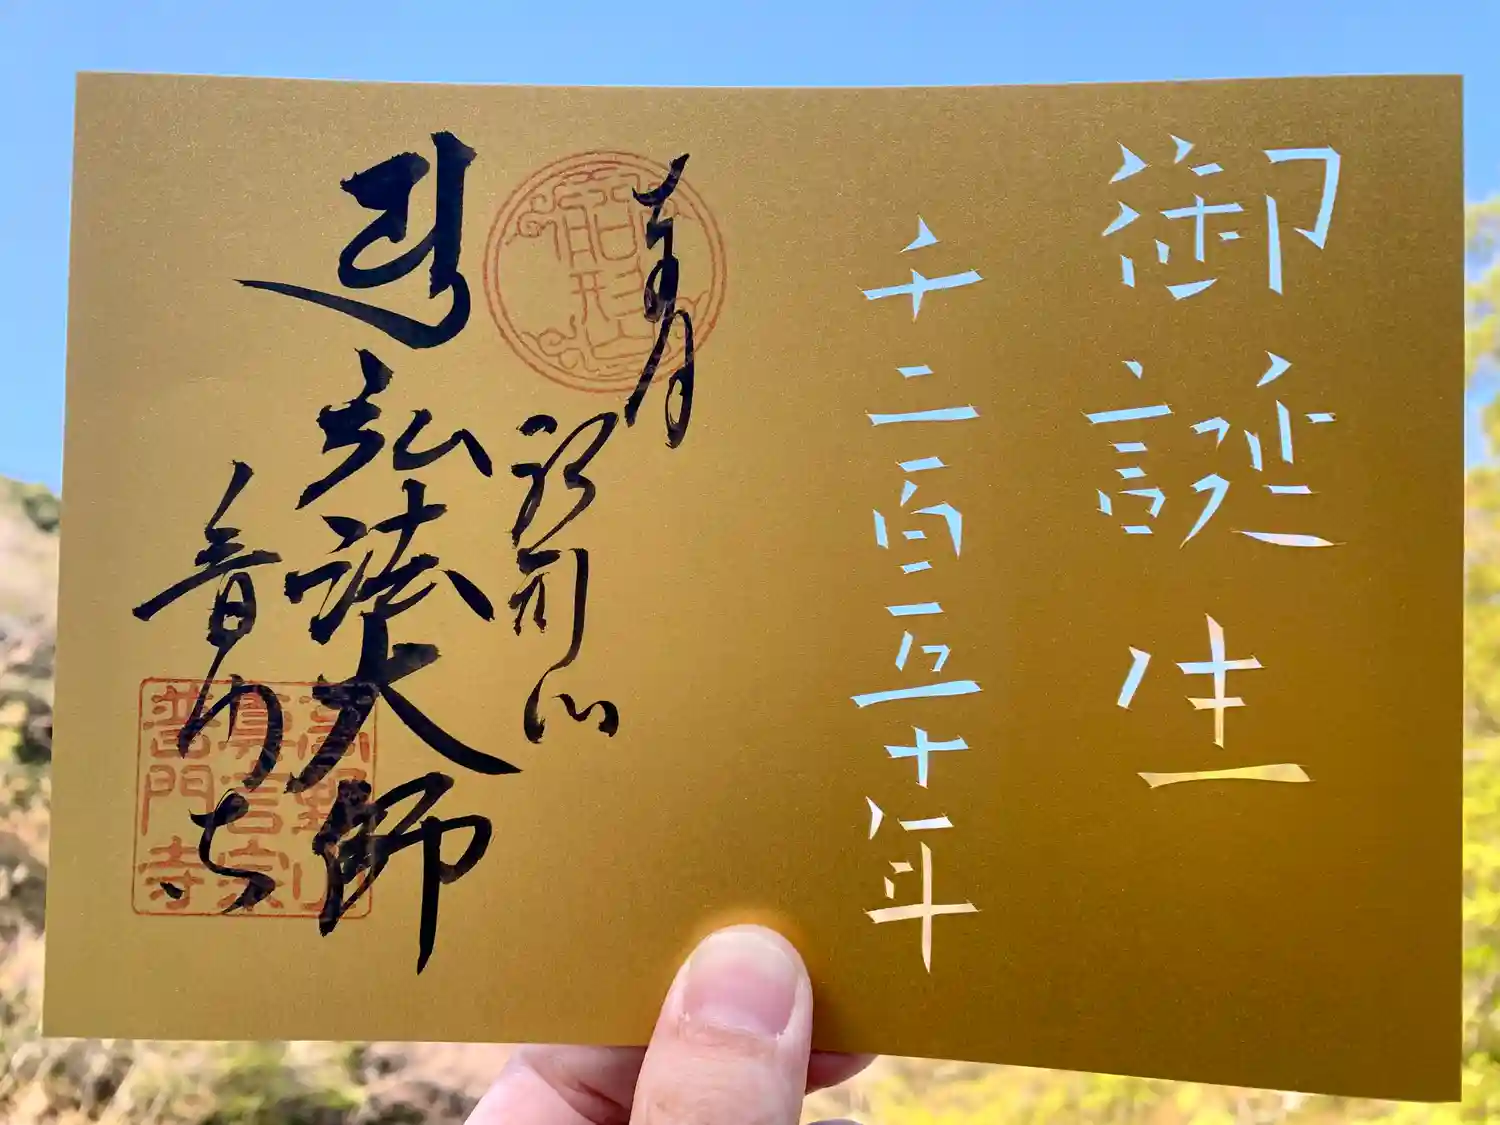 御誕生
千二百五十年
船形山
弘法大師
普門寺
船形山
高野山
眞言宗
普門寺